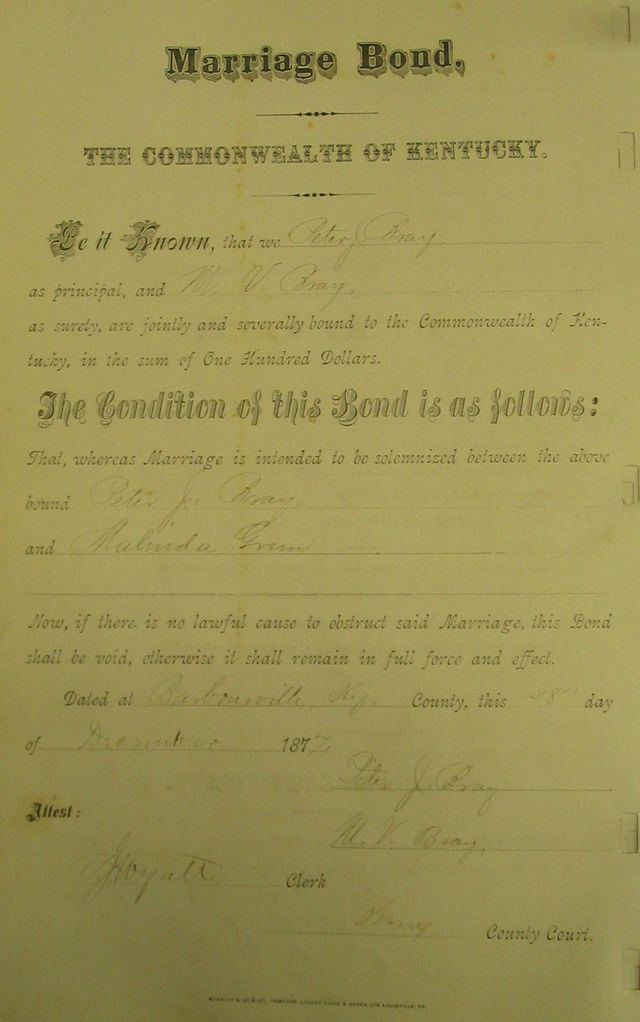 Marriage Bond.
THE COMMONWEALTH OF KENTUCKY.
Be it Known, that we Peter J Bray.
as principal, and M. V. Bray,
as surety, are jointly and severally bound to the Commonwealth of Ken-
tucky, in the sum of One Hundred Dollars.
The Condition of this Bond is as follows:
That, whereas Marriage is intended to be solemnized between the above
bound Peter J. Bray,
and Malinda Green
Now, if there is no lawful cause to obstruct said Marriage, this Bond
shall be void, otherwise it shall remain in full force and effect.
Dated at Barbourville, Ky. County, this 28" day
of December 1877
Peter J. Bray
Attest:
M. V. Bray,
Wyatt Clerk
County Court.